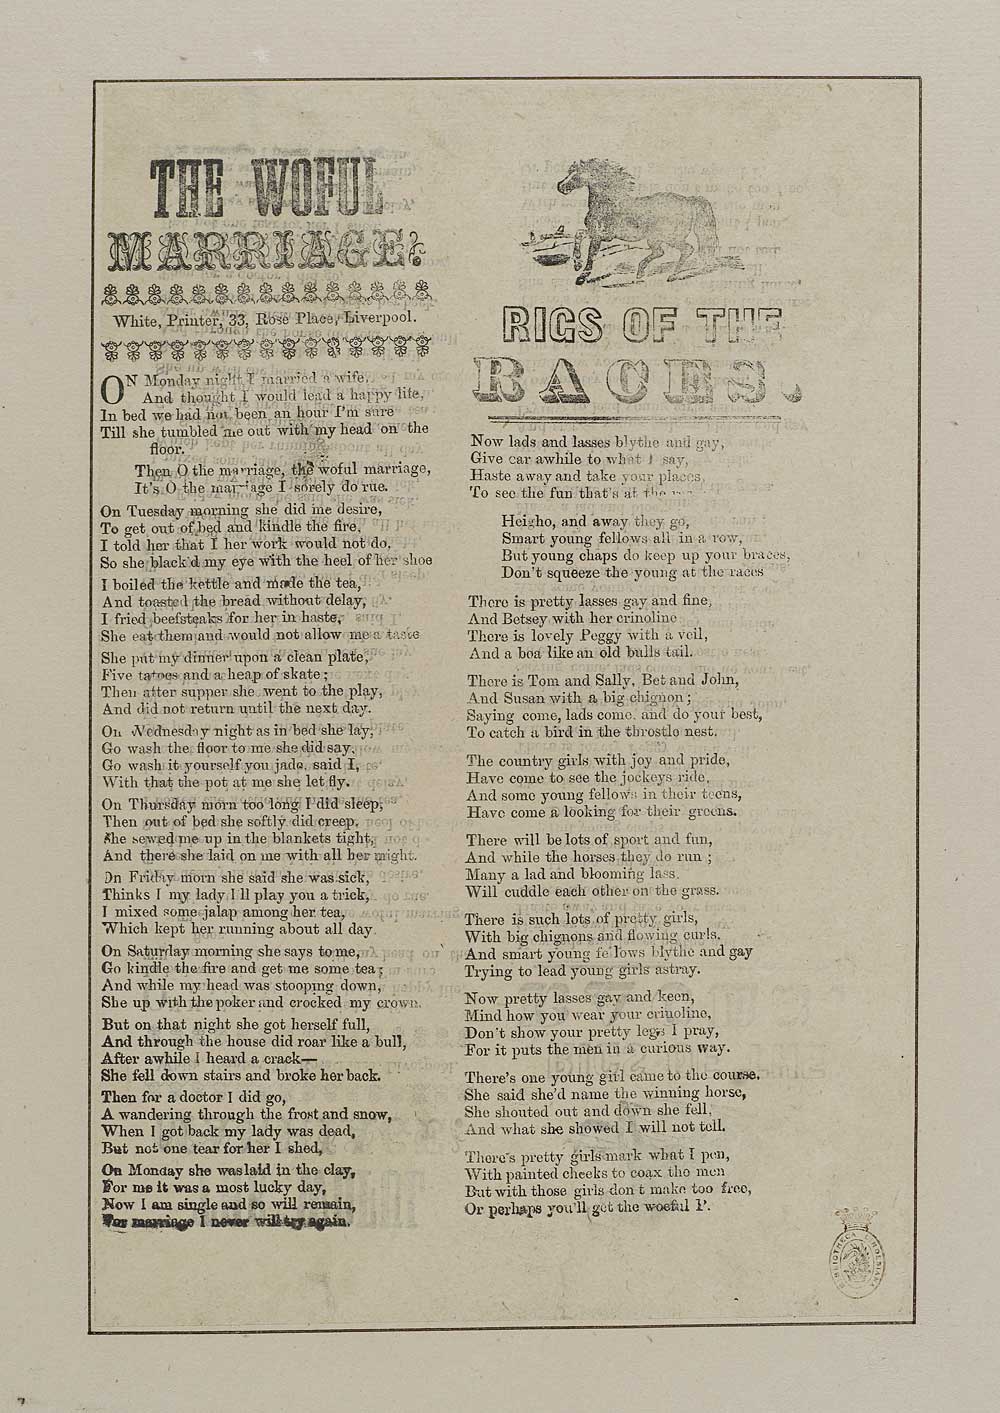 THE WOFUL
MARRIAGE.
White, Printer, 33, Rose Place, Liverpool.
ON Monday night I married a wife,
And thought I would lead a happy life,
In bed we had not been an hour I'm sure
Till she tumbled me out with my head on the
floor.
Then O the marriage, the woful marriage,
It's O the marriage I sorely do rue.
On Tuesday morning she did me desire,
To get out of bed and kindle the fire,
I told her that I her work would not do,
So she black'd my eye with the heel of her shoe
I boiled the kettle and made the tea,
And toasted the bread without delay,
I fried beefsteaks for her in haste,
She eat them and would not allow me a taste
She put my dinner upon a clean plate,
Five tatoes and a heap of skate;
Then after supper she went to the play,
And did not return until the next day.
On Wednesday night as in bed she lay,
Go wash the floor to me she did say,
Go wash it yourself you jade, said I,
With that the pot at me she let fly.
On Thursday morn too long I did sleep,
Then out of bed she softly did creep,
She sewed me up in the blankets tight,
And there she laid on me with all her might.
On Friday morn she said she was sick,
Thinks I my lady I'll play you a trick,
I mixed some jalap among her tea,
Which kept her running about all day
On Saturday morning she says to me,
Go kindle the fire and get me some tea;
And while my head was stooping down,
She up with the poker and crocked my crown.
But on that night she got herself full,
And through the house did roar like a bull,
After awhile I heard a crack—
She fell down stairs and broke her back.
Then for a doctor I did go,
A wandering through the frost and snow,
When I got back my lady was dead,
But not one tear for her I shed,
On Monday she was laid in the clay,
For me it was a most lucky day,
Now I am single and so will remain,
For marriage I never will try again.
RIGS OF THE
RACES.
Now lads and lasses blythe and gay,
Give ear awhile to what I say,
Haste away and take your places,
To see the fun that's at the
Heigho, and away they go,
Smart young fellows all in a row,
But young chaps do keep up your braces,
Don't squeeze the young at the races
There is pretty lasses gay and fine,
And Betsey with her crinoline
There is lovely Peggy with a veil,
And a boa like an old bulls tail.
There is Tom and Sally, Bet and John,
And Susan with a big chignon;
Saying come, lads come, and do your best,
To catch a bird in the throstle nest.
The country girls with joy and pride,
Have come to see the jockeys ride,
And some young fellows in their teens,
Have come a looking for their greens.
There will be lots of sport and fun,
And while the horses they do run;
Many a lad and blooming lass.
Will cuddle each other on the grass.
There is such lots of pretty girls,
With big chignons and flowing curls.
And smart young fellows blythe and gay
Trying to lead young girls astray.
Now pretty lasses gay and keen,
Mind how you wear your crinoline,
Don't show your pretty legs I pray,
For it puts the men in a curious way.
There's one young girl came to the course,
She said she'd name the winning horse,
She shouted out and down she fell,
And what she showed I will not tell.
There's pretty girls mark what I pen,
With painted cheeks to coax the men
But with those girls don t make too free,
Or perhaps you'll get the woeful P.
BIBLIOTHECA LINDESIANA
7